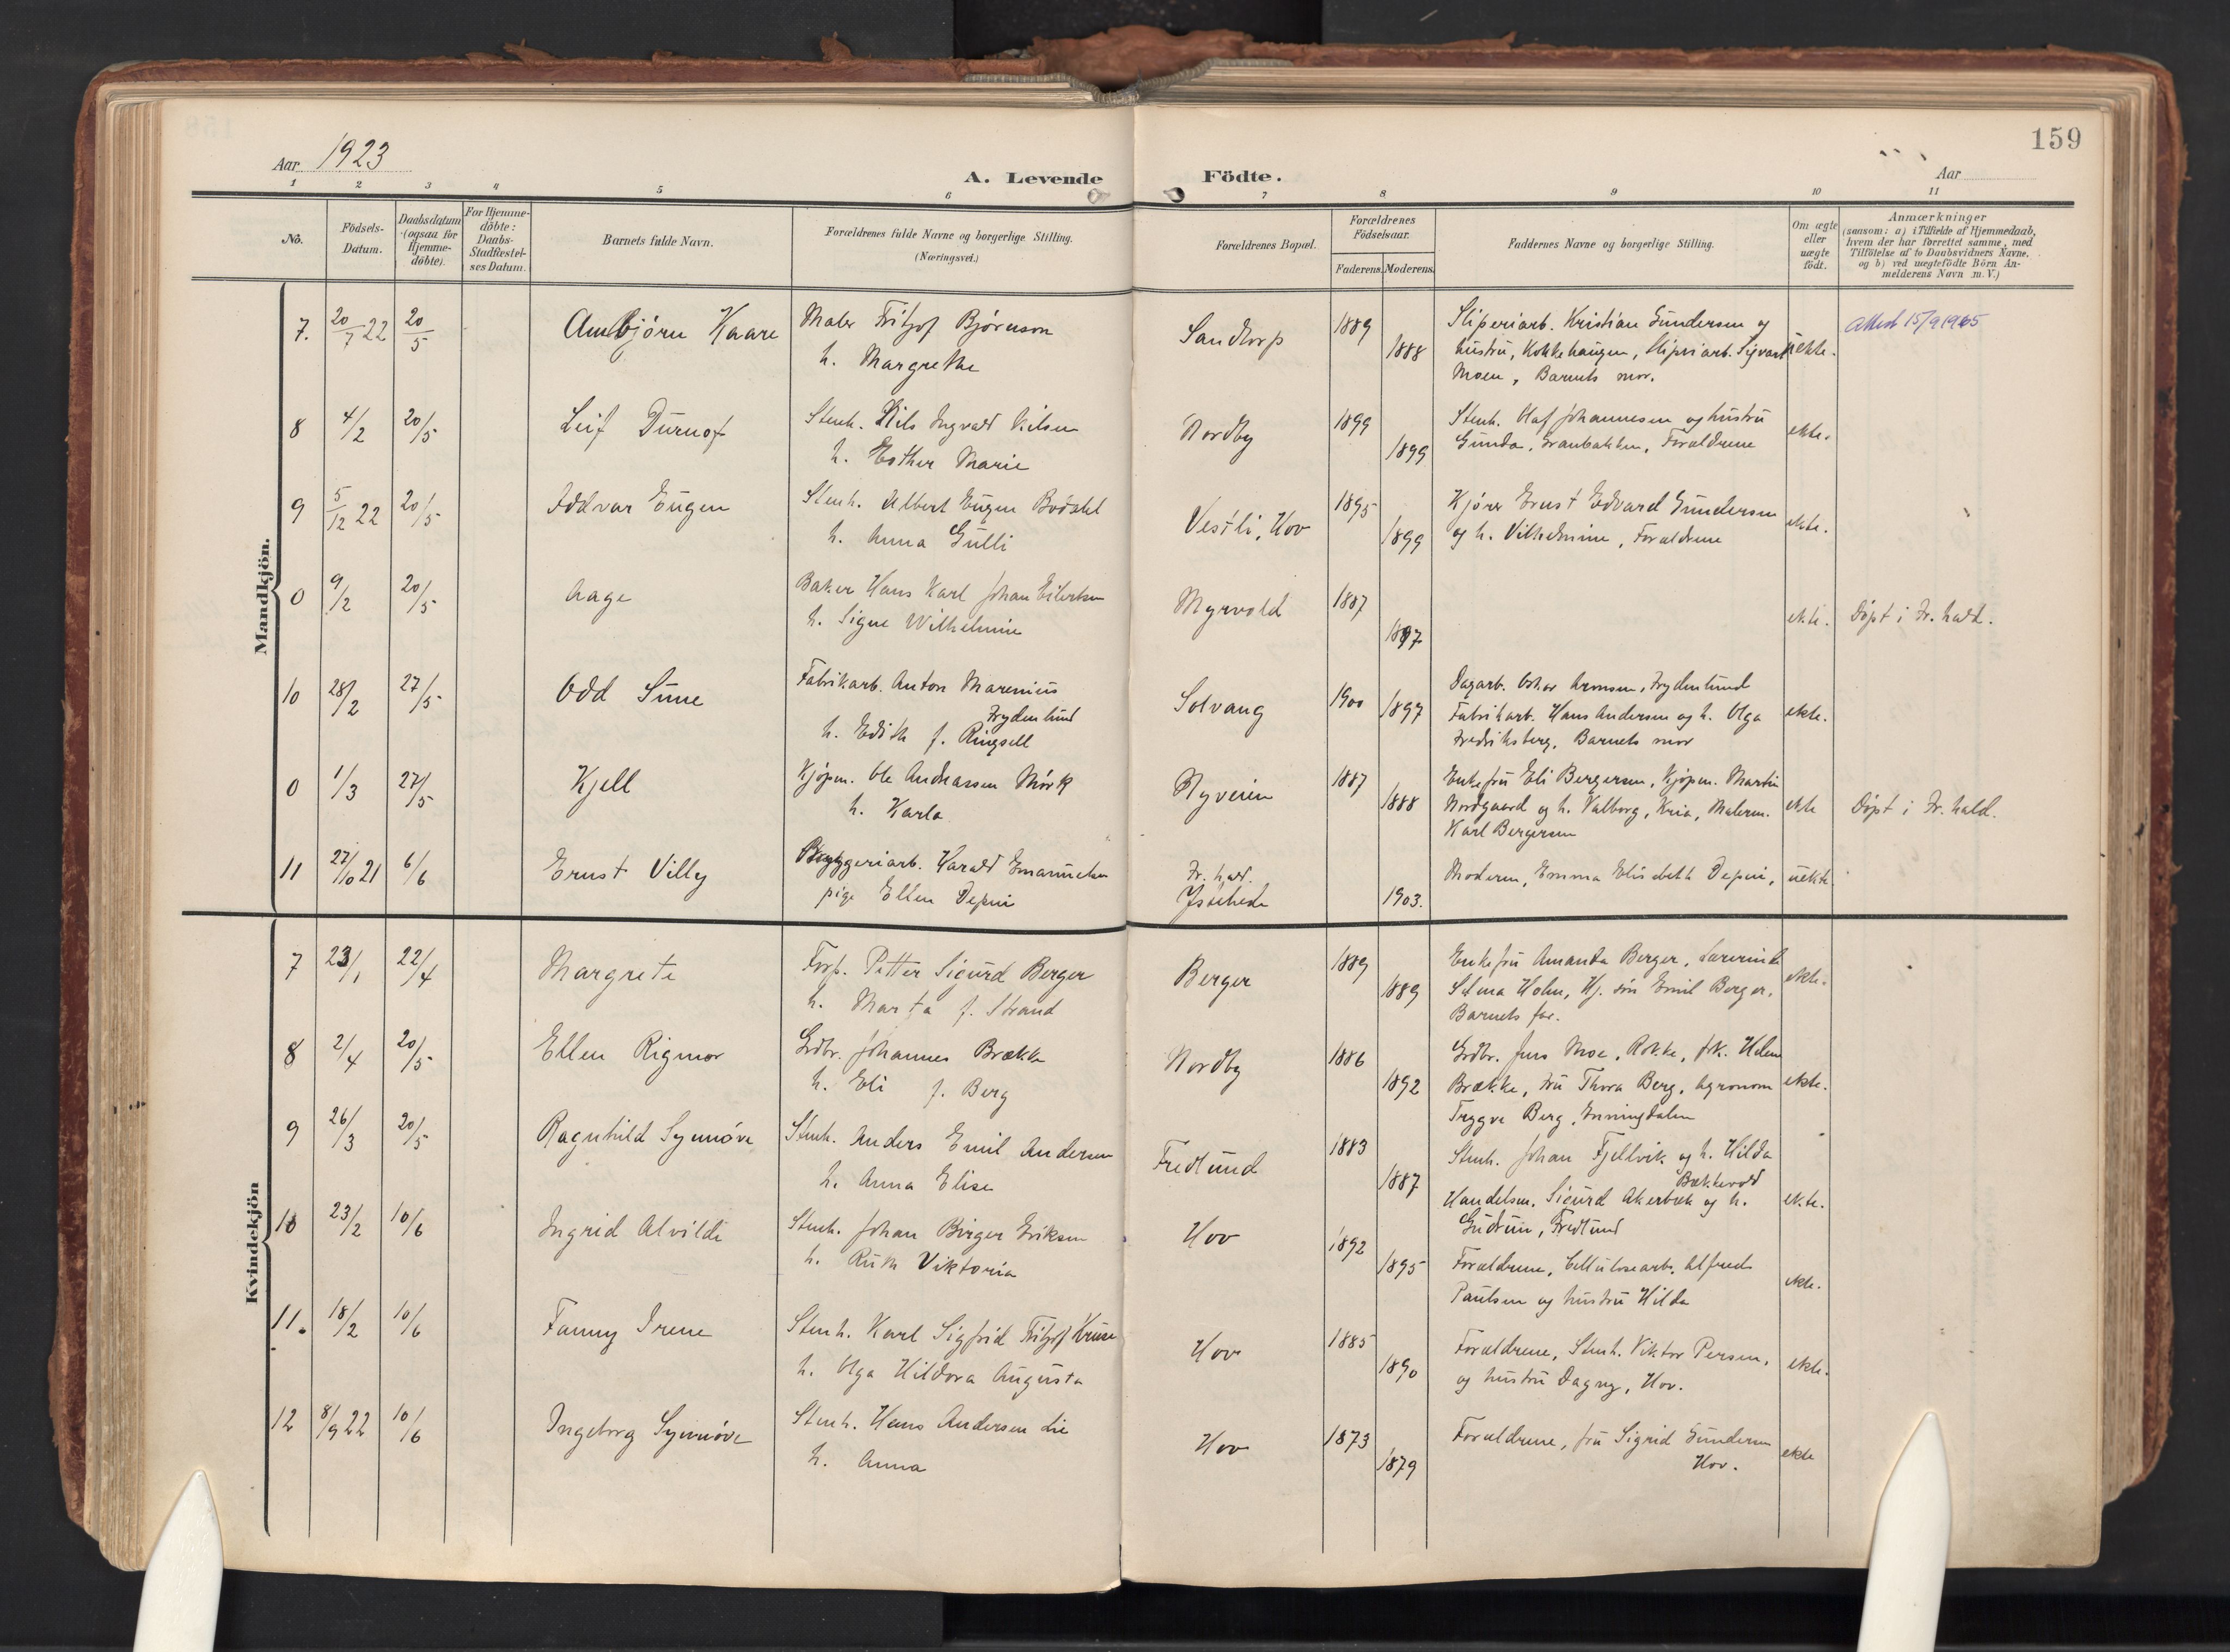 159
Aar 1923
A. Levende Födte.
Aar
1 2 3 4 5 6 7 8 9 10 11
No.
Födsels-Datum.
Daabsdatum (ogsaa for Hjemme-döbte).
For Hjemme-döbte: Daabs-Stadfæstel-ses Datum.
Barnets fulde Navn.
Forældrenes fulde Navne og borgerlige Stilling. (Næringsvei.)
Forældrenes Bopæl.
Forældrenes Födselsaar.
Faderens. Moderens.
Faddernes Navne og borgerlige Stilling.
Om ægte eller uægte födt.
Anmærkninger
(saasom: a) i Tilfælde af Hjemmedaab,
hvem der har forrettet samme, med
Tilföielse af to Daabsvidners Navne.
og b) ved uægtefödte Börn An-
melderens Navn m. V.)
Mandkjön.
7. 20/7 22 20/5 Arnbjörn Kaare Maler Fritjof Bjørnson Sandtorp 1889 Sliperiarb. Kristian Gundersen og Attest 15/9 1965
h. Margrethe 1888 hustru, Kokkehaugen, Sliperiarb. Sigvart ekte.
Moen, Barnets mor.
8 4/2 20/5 Leif Durnof Stenh. Nils Ingvald Nilsen Nordby 1899 Stenh. Olaf Johannesen og hustru ekte.
h. Esther Marie 1899 Gunda, Granbakken, Forældrene
9 5/12 22 20/5 Oddvar Eugen Stenh. Albert Eugen Bodahl Vestli, Hov 1895 Kjører Ernst Edvard Gundersen ekte.
h. Anna Gulli 1899 og h. Vilhelmine, Forældrene
0 9/2 20/5 Aage Baker Hans Karl Johan Eilertsen Myrvold 1887 ekte. Döpt i Fr.hald.
h. Signe Wilhelmine 1897
10 28/2 27/5 Odd Sune Fabrikarb. Anton Marenius Solvang 1900 Dagarb. Oskar Aronsen, Frydenlund
Frydenlund 1897 Fabrikarb. Hans Andersen og h. Olga ekte.
h. Edith f. Ringsell Fredriksberg, Barnets mor
0 1/3 27/5 Kjell Kjøpm. Ole Andreassen Mörk Nyveien 1887 Enkefru Eli Bergersen, Kjøpm. Martin
h. Karla 1888 Nordgaard og h. Valborg, Kria, Malerm. ekte Döpt i Fr.hald.
Karl Bergersen
11 27/10 21 6/6 Ernst Villy Bryggeriarb. Harald Emanuelsen Fr.hald. Moderen, Emma Elisabeth Depui, uekte.
pige Ellen Depui 1903.
Kvindekjön
7 23/1 22/4 Margrete Forp. Petter Sigurd Berger Berger 1889 Enkefru Amanda Berger, Lærerinde ekte.
h. Marta f. Strand 1889 Selma Holm, Hj. sön Emil Berger,
Barnets far.
8 2/4 20/5 Ellen Rigmor Grdbr. Johannes Brække Nordby 1886 Grdbr. Jens Moe, Rokke, frk. Helene
h. Eli f. Berg 1892 Brække, fru Thora Berg, Agronom ekte.
Trygve Berg, Enningdalen
9 26/3 20/5 Ragnhild Synnöve Stenh. Anders Emil Andersen Fredlund 1883 Stenh. Johan Fjellvik og h. Hilda
Bækkevold
h. Anna Elise 1887 Handelsm. Sigurd Akerbæk og h. ekte.
Gudrun, Fredlund
10 23/2 10/6 Ingrid Alvilde Stenh. Johan Birger Eriksen Hov 1892 Forældrene, Cellulosearb. Alfred ekte.
h. Ruth Viktoria 1895 Paulsen og hustru Hilda
11. 18/2 10/6 Fanny Irene Stenh. Karl Sigfrid Fritjof Kruse Hov 1885 Forældrene, Stenh. Viktor Persen, ekte.
h. Olga Hildora Augusta 1890 og hustru Dagny, Hov.
12 8/9 22 10/6 Ingeborg Synnöve Stenh. Hans Andersen Lie Hov 1873 Forældrene, fru Sigrid Gundersen ekte
h. Anna 1879 Hov.